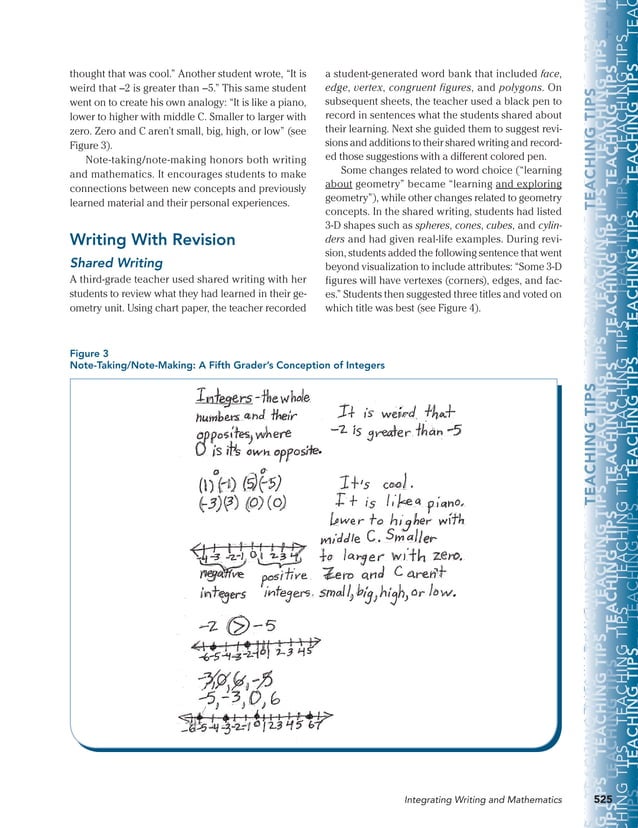 thought that was cool.” Another student wrote, “It is
weird that –2 is greater than –5.” This same student
went on to create his own analogy: “It is like a piano,
lower to higher with middle C. Smaller to larger with
zero. Zero and C aren’t small, big, high, or low” (see
Figure 3).
Note-taking/note-making honors both writing
and mathematics. It encourages students to make
connections between new concepts and previously
learned material and their personal experiences.
Writing With Revision
Shared Writing
A third-grade teacher used shared writing with her
students to review what they had learned in their ge-
ometry unit. Using chart paper, the teacher recorded
a student-generated word bank that included face,
edge, vertex, congruent figures, and polygons. On
subsequent sheets, the teacher used a black pen to
record in sentences what the students shared about
their learning. Next she guided them to suggest revi-
sions and additions to their shared writing and record-
ed those suggestions with a different colored pen.
Some changes related to word choice (“learning
about geometry” became “learning and exploring
geometry”), while other changes related to geometry
concepts. In the shared writing, students had listed
3-D shapes such as spheres, cones, cubes, and cylin-
ders and had given real-life examples. During revi-
sion, students added the following sentence that went
beyond visualization to include attributes: “Some 3-D
figures will have vertexes (corners), edges, and fac-
es.” Students then suggested three titles and voted on
which title was best (see Figure 4).
Figure 3
Note-Taking/Note-Making: A Fifth Grader’s Conception of Integers
Integers - the whole
numbers and their
opposites, where
0 is it's own opposite.
0 0
(1)(-1) (5)(-5)
(-3)(3) (0)(0)
-4 -3 -2 -1 0 1 2 3 4
negative positive
integers integers.
-2 > -5
-6 -5 -4 -3 -2 -1 0 1 2 3 4 5
-3, 0, 6, -5
-5, -3, 0, 6
-6 -5 -4 -3 -2 -1 0 1 2 3 4 5 6 7
It is weird that
-2 is greater than -5
It's cool.
It is like a piano.
Lower to higher with
middle C. Smaller
to larger with zero.
Zero and C aren't
small, big, high, or low.
Integrating Writing and Mathematics
525
TEACHING TIPS
TEACHING TIPS
TEACHING TIPS
TEACHING TIPS
TEACHING TIPS
TEACHING TIPS